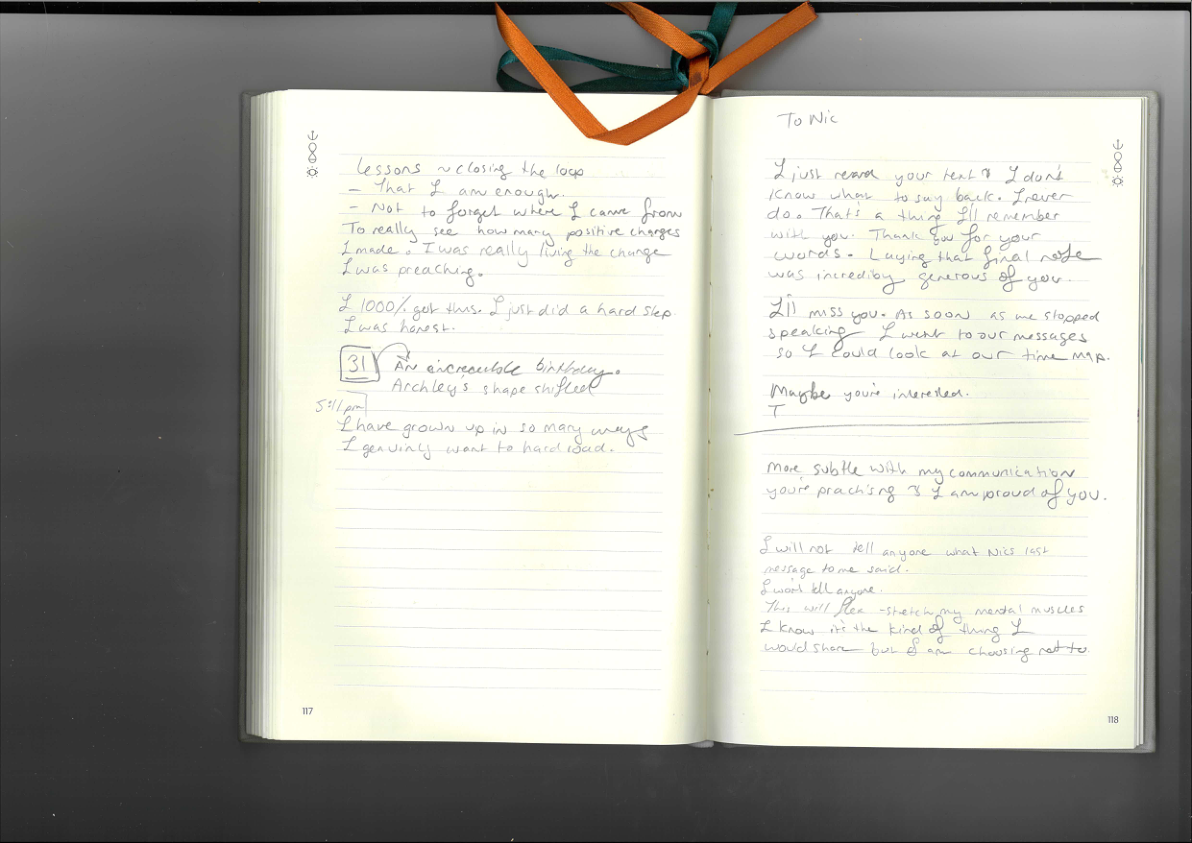 lessons ~ closing the loop
- That I am enough.
- Not to forget where I came from
To really see how many positive changes
I made. I was really living the change
I was preaching.
I 1000% got this. I just did a hard step.
I was honest.
31 An increadible birthday.
Archley's shape shifted
5:11pm
I have grown up in so many ways
I genuinly want to hard
117
To Nic
I just reread your text & I don't
know what to say back. I never
do. That's a thing I'll remember
with you. Thank you for your
words. Laying that final note
was incrediby generous of you.
I'll miss you. As soon as we stopped
speaking I went to our messages
so I could look at our time map.
Maybe you're interested.
T
More subtle with my communication
you're practising & I am proud of you.
I will not tell anyone what Nics last
message to me said.
I won't tell anyone.
This will flex - stretch my mental muscles
I know it's the kind of thing I
would share but I am choosing not to.
118